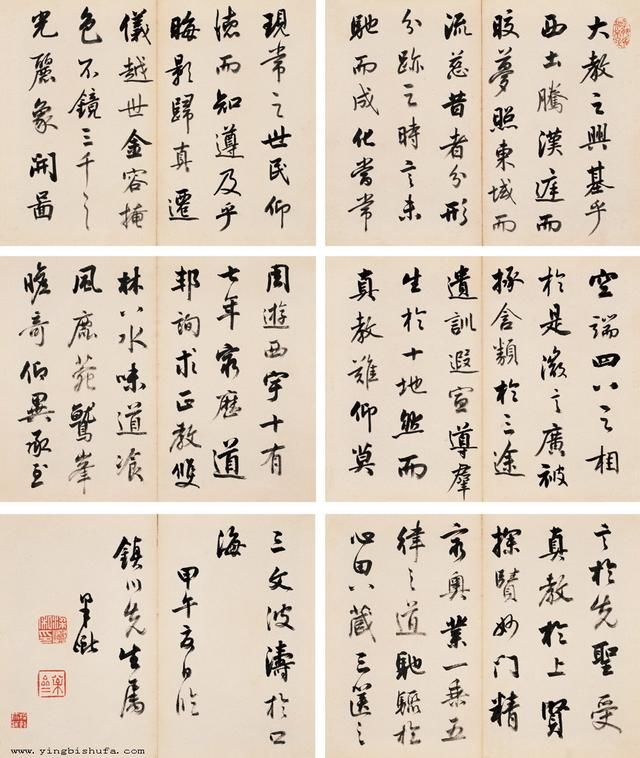 大教之興基乎
西土騰漢庭而
皎夢照東域而
流慈昔者分形
分跡之時言未
馳而成化當常
現常之世民仰
德而知遵及乎
晦影歸真遷
儀越世金容掩
色不鏡三千之
光麗象開圖
空端四八之相
於是微言廣被
拯含類於三途
遺訓遐宣導羣
生於十地然而
真教難仰莫
周遊西宇十有
七年窮歷道
邦詢求正教雙
林八水味道飡
風鹿菀鷲峯
瞻奇仰異承至
言於先聖受
真教於上賢
探賾妙門精
窮奧業一乘五
律之道馳驟於
心田八藏三篋之
三文波濤於口
海
甲午夏日臨
鎮川先生属
www.yingbishufa.com